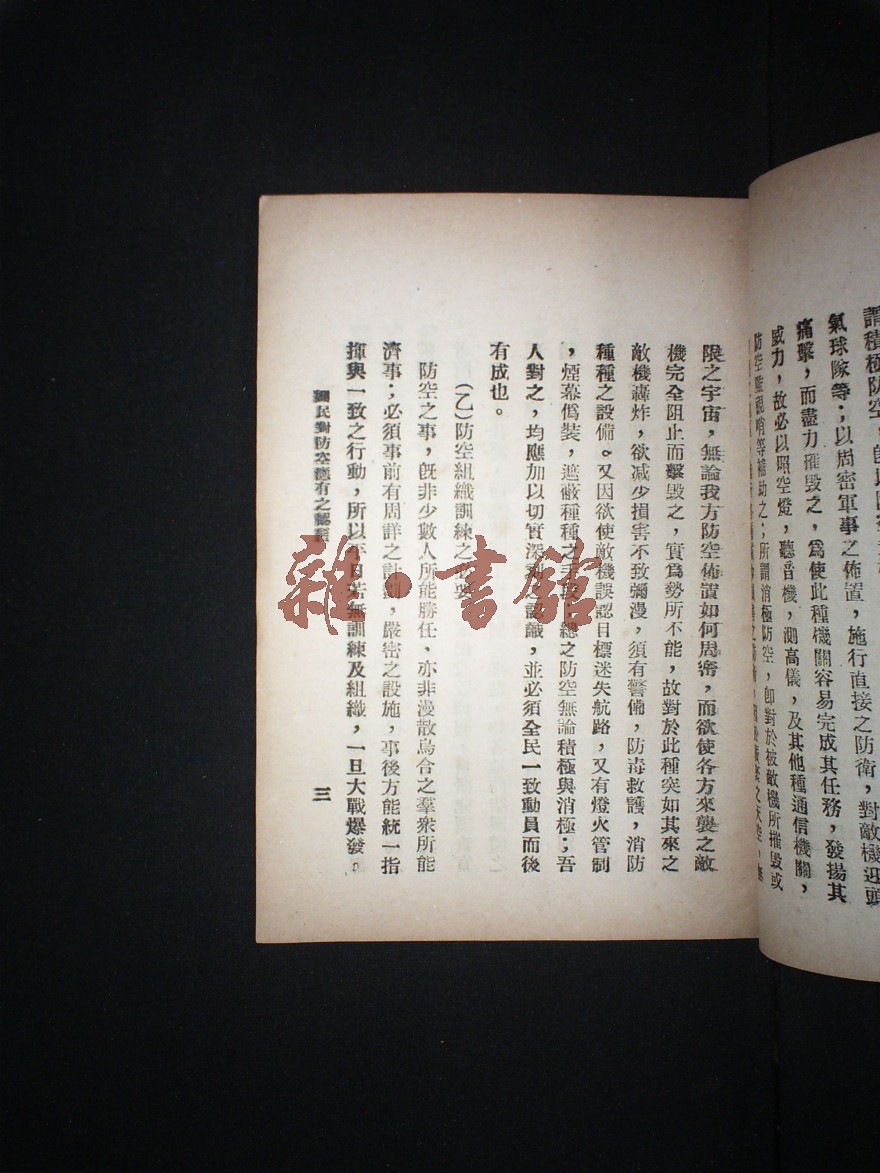 請積極防空,
氣球隊等;以周密軍事之佈置,施行直接之防衛,對敵機迎頭
痛擊,而盡力摧毀之,爲使此種機關容易完成其任務,發揚其
威力,故必以照空燈,聽音機,測高儀,及其他種通信機關,
防空監視哨等補助之;所謂消極防空,卽對於被敵機所摧毀或
限之宇宙,無論我方防空佈置如何周密,而欲使各方來襲之敵
機完全阻止而擊毀之,實爲勢所不能,故對於此種突如其來之
敵機轟炸,欲减少損害不致彌漫,須有警備,防毒救護,消防
種種之設備。又因欲使敵機誤認目標迷失航路,又有燈火管制
,煙幕僞裝,遮蔽種種之手段,總之防空無論積極與消極;吾
人對之,均應加以切實深刻之認識,並必須全民一致動員而後
有成也。
(乙)防空組織訓練之必要
防空之事,旣非少數人所能勝任、亦非漫散烏合之羣衆所能
濟事;必須事前有周詳之計劃,嚴密之設施,事後方能統一指
揮與一致之行動,所以平日若無訓練及組織,一旦大戰爆發。
國民對防空應有之認識
三
雜·書館